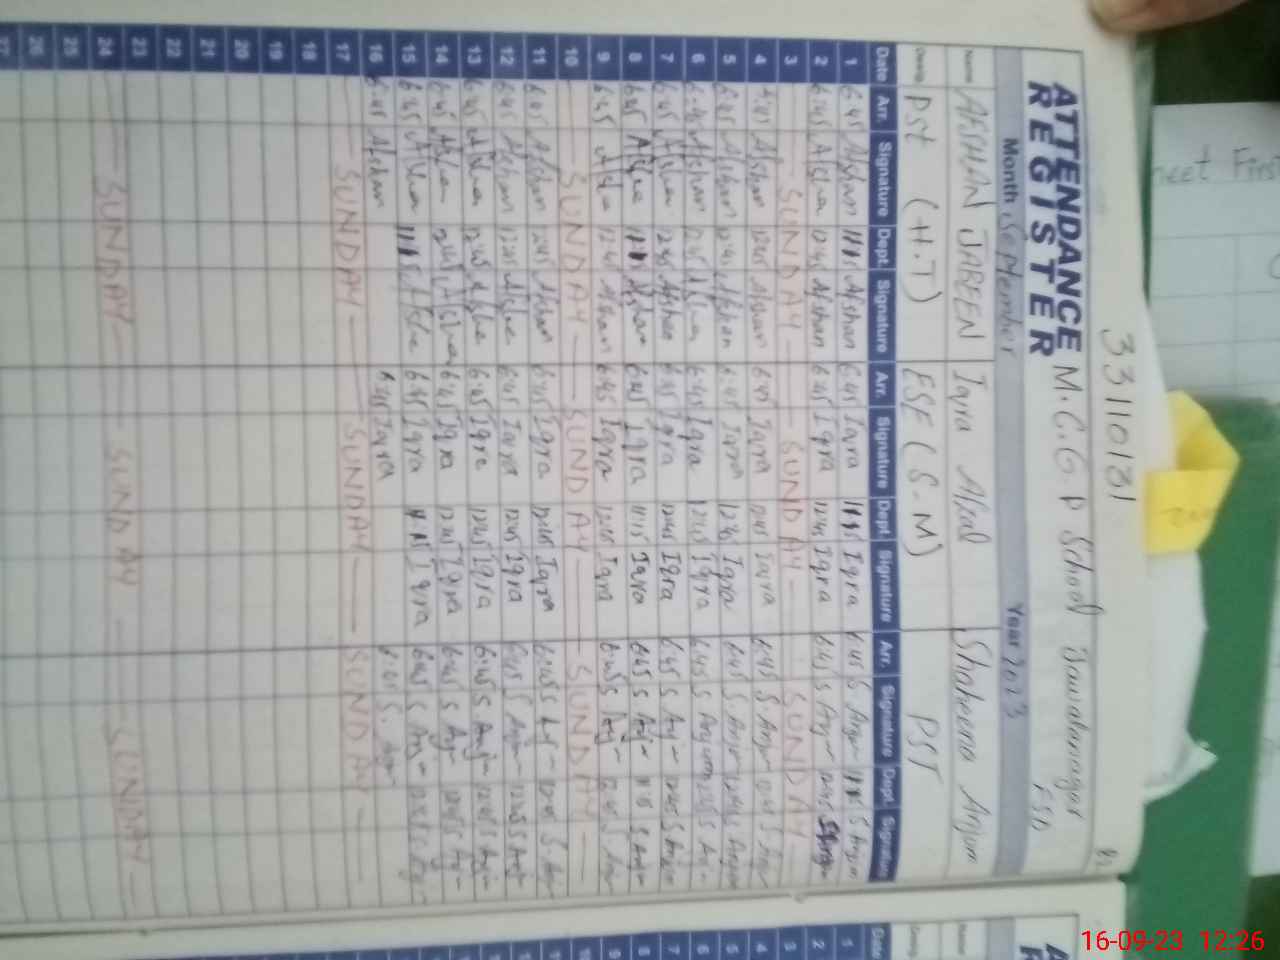 33110131
ATTENDANCE REGISTER
M.C.G.P School Jawalanagar FSD
Month September Year 2023
Name AFSHAN JABEEN Iqra Afzal Shakeena Anjum
Desig. PST (H.T) ESE (S-M) PST
Date Arr. Signature Dept. Signature Arr. Signature Dept. Signature Arr. Signature Dept. Signature
1 6:45 Afshan 1115 Afshan 6:45 Iqra 1115 Iqra 6:45 S Anjum 1115 S Anjum
2 6:45 Afshan 12:45 Afshan 6:45 Iqra 12:45 Iqra 6:45 S Anjum 12:45
3 SUNDAY SUNDAY SUNDAY
4 6:45 Afshan 12:45 Afshan 6:45 Iqra 12:45 Iqra 6:45 S Anjum 12:45 S Anjum
5 6:45 Afshan 12:45 Afshan 6:45 Iqra 12:45 Iqra 6:45 S Anjum 12:45 Anjum
6 6:45 Afshan 12:45 Afshan 6:45 Iqra 12:45 Iqra 6:45 S Anjum 12:45 S
7 6:45 Afshan 12:45 Afshan 6:45 Iqra 12:45 Iqra 6:45 S Anjum 12:45 S Anjum
8 6:45 Afshan 1115 Afshan 6:45 Iqra 11:15 Iqra 6:45 S Anjum 1115 S Anjum
9 6:45 Afshan 12:45 Afshan 6:45 Iqra 12:45 Iqra 6:45 S Anjum 12:45 S
10 SUNDAY SUNDAY SUNDAY
11 6:45 Afshan 12:45 Afshan 6:45 Iqra 12:45 Iqra 6:45 S Anjum 12:45 S Anjum
12 6:45 Afshan 12:45 Afshan 6:45 Iqra 12:45 Iqra 6:45 S Anjum 12:45 S Anjum
13 6:45 Afshan 12:45 Afshan 6:45 Iqra 12:45 Iqra 6:45 S Anjum 12:45 S Anjum
14 6:45 Afshan 12:45 Afshan 6:45 Iqra 12:45 Iqra 6:45 S Anjum 12:45 S Anjum
15 6:45 Afshan 1115 Afshan 6:45 Iqra 1115 Iqra 6:45 S Anjum
16 6:45 Afshan 6:45 Iqra 6:45 S. Anjum
17 SUNDAY SUNDAY SUNDAY
18
19
20
21
22
23
24 SUNDAY SUNDAY SUNDAY
25
26
27
Date 1 2 3 4 5 6 7 8 9 10 11
16-09-23 12:26